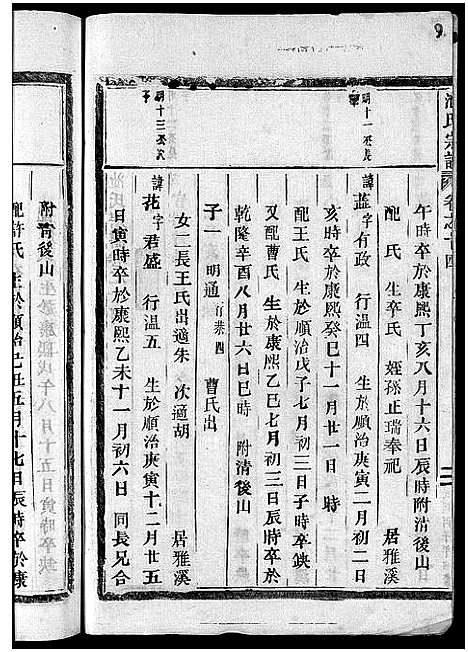 池氏宗譜
卷之
午時卒於康熙丁亥八月十六日辰時附清後山
配 氏 生卒氏 姪孫正瑞奉祀 居雅溪
諱藍字有政 行溫四 生於順治庚寅二月初二日
亥時卒於康熙癸巳十一月廿一日 時
配王氏 生於順治戊子七月初三日子時卒缺
又配曹氏 生於康熙乙巳七月初三日辰時卒於
乾隆辛酉八月廿六日巳時 附清後山
子一 明通 行恭四 曹氏出
女二長王氏出適朱 次適胡 居雅溪
諱花字君盛 行溫五 生於順治庚寅十二月廿五
日寅時卒於康熙乙未十一月初六日 同長兄合
明十一丞長
明十三丞次
子
附清後山
配許氏 生於順治己丑五月十七日辰時卒於康